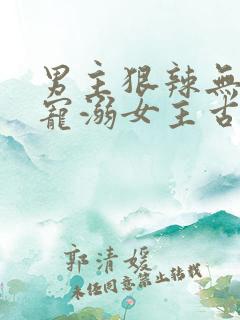 男主狠辣無
寵溺女主古
郭清媛
未经同意禁止转载